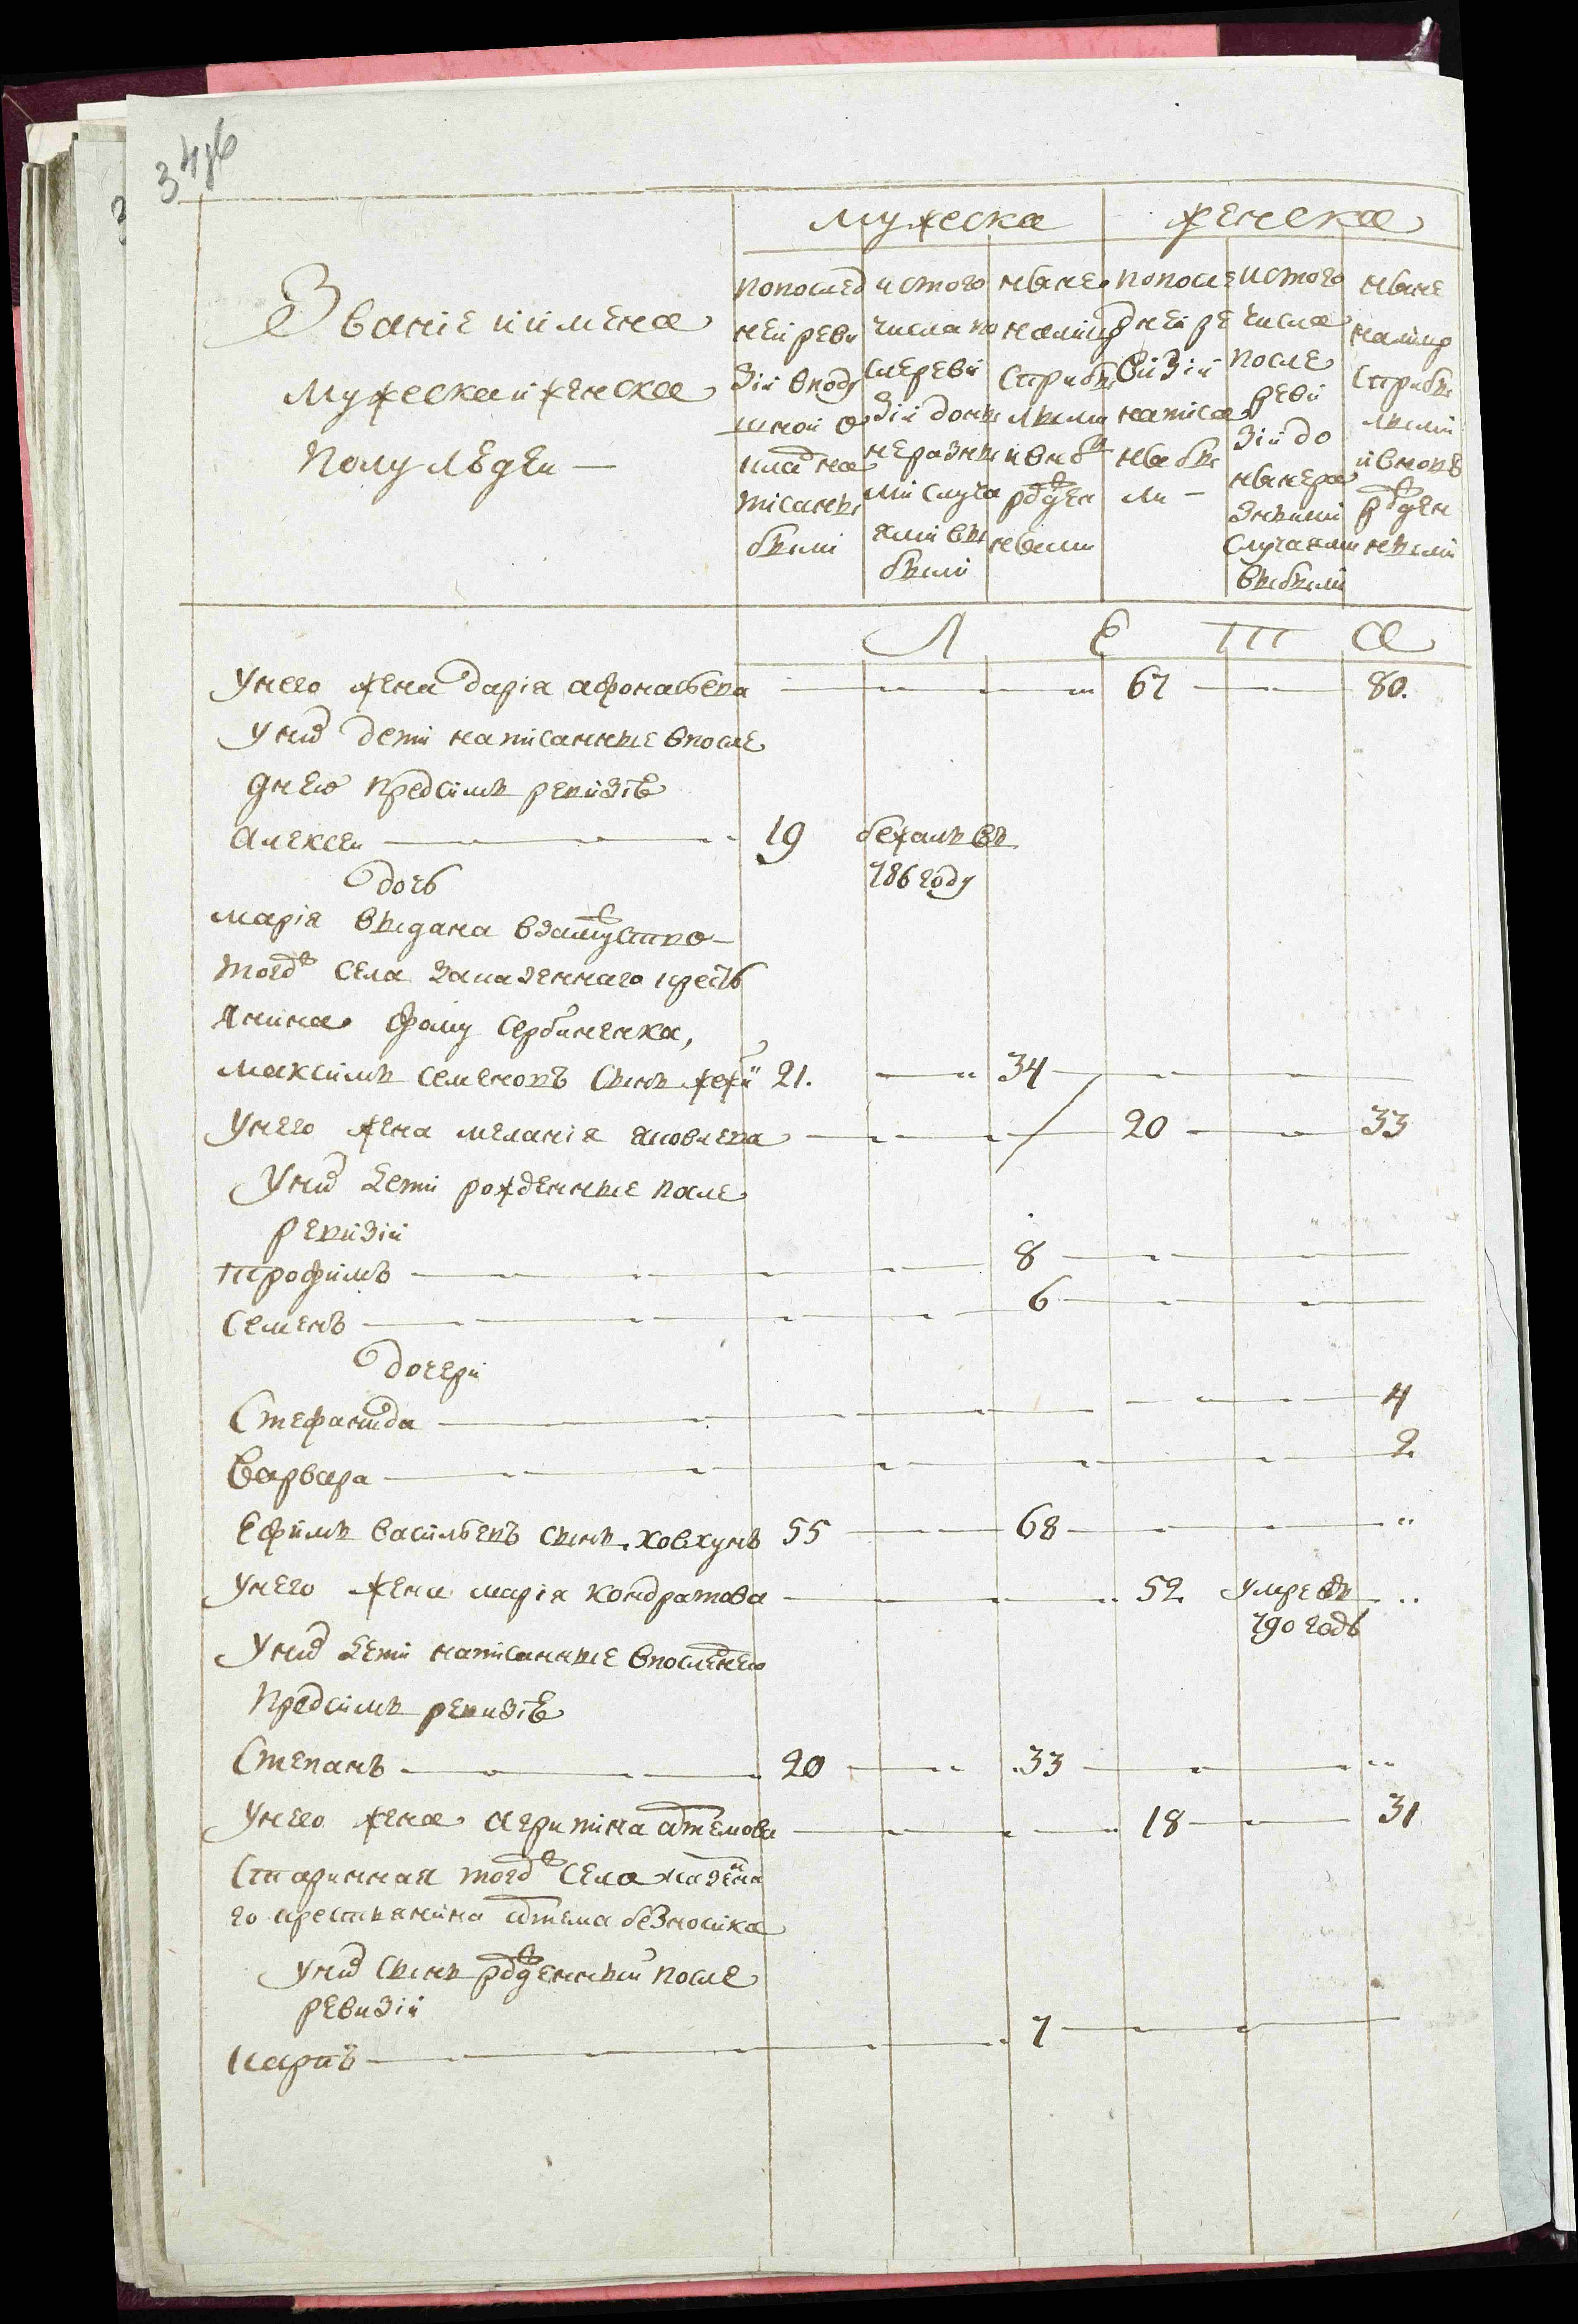 34об
мужеска женска
Званіе иимена
мужескаиженска
полу людеи —
попослед
неи реви
зіи вподу
шнои о
кладна
писаны
были
истого
числа по
слереви
зіи доны
неразны
ми случа
ями вы
были
ныне
налицо
сприбы
лыми
ивновь
рожден
ными
попосле
днеи ре
визіи
написа
ны бы
ли —
истого
числа
после
реви
зіи до
ныне ра
зными
случаями
выбыли
ныне
налицо
сприбы
лыми
ивновь
рожден
ными
Л Е Т А
унего жена дарія афонасьева 67 80.
уних дети написанные впосле
днею предсимъ ревизіе
Алексеи 19 бежалъ въ
дочь 786 году
марія выдана взамужство
тогож села казеннаго кресть
янина фому Сербиненка,
максимъ семеновъ сынъ 21. 34
унего жена меланія яковлева 20 33
уних дети рожденные после
ревизіи
трофимъ 8
Семенъ 6
дочери
Стефанида 4
Варвара 2
Ефимъ васильевъ сынъ ховхунъ 55 68
унего жена марія кондратова 52 умре въ
790 годе
уних дети написанные впоследнею
предсимъ ревизіе
Степанъ 20 33
унего жена акрипина артемова 18 31
старинная тогож села казенна
го крестьянина артема безносика
уних сынъ рожденный после
ревизіи
карпъ 7